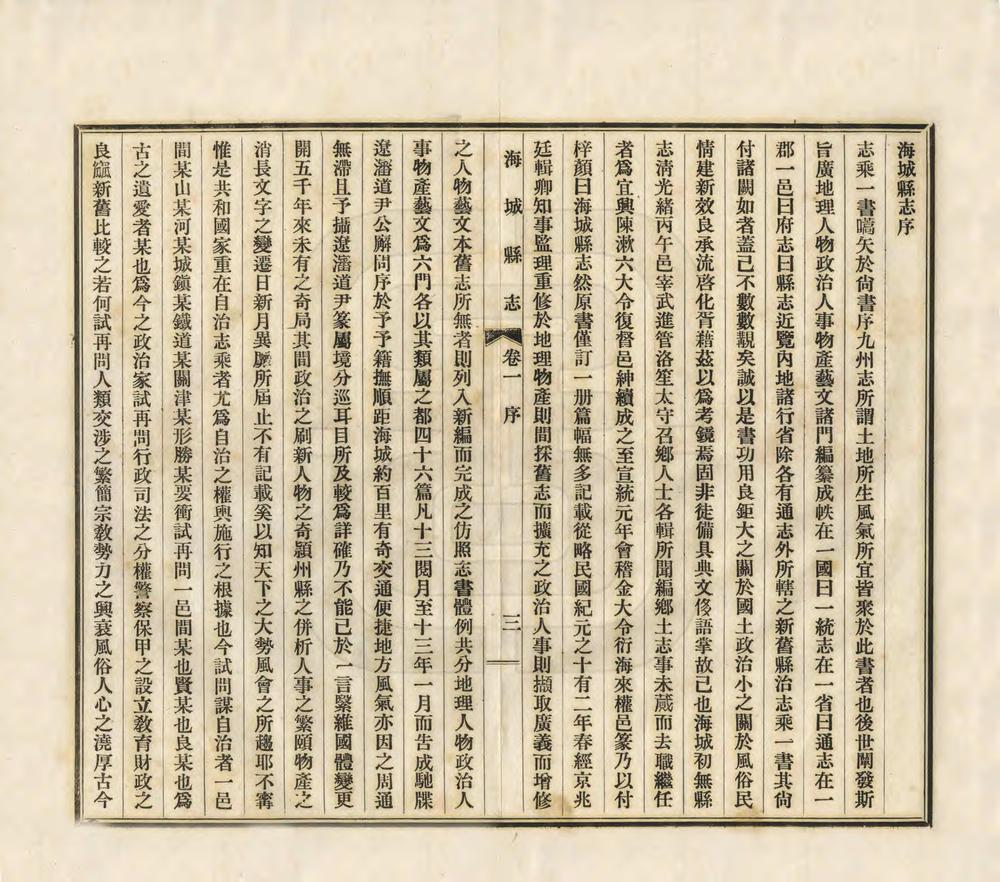 海城縣志序
志乘一書嚆矢於尙書序九州志所謂土地所生風氣所宜皆聚於此書者也後世闡發斯
旨廣地理人物政治人事物產藝文諸門編纂成帙在一國曰一統志在一省曰通志在一
郡一邑曰府志曰縣志近覽內地諸行省除各有通志外所轄之新舊縣治志乘一書其尙
付諸闕如者蓋已不數數覯矣誠以是書功用良鉅大之關於國土政治小之關於風俗民
情建新效良承流啓化胥藉茲以爲考鏡焉固非徒備具典文侈語掌故已也海城初無縣
志淸光緒丙午邑宰武進管洛笙太守召鄉人士各輯所聞編鄉土志事未蕆而去職繼任
者爲宜興陳漱六大令復督邑紳續成之至宣統元年會稽金大令衍海來權邑篆乃以付
梓顏曰海城縣志然原書僅訂一册篇幅無多記載從略民國紀元之十有二年春經京兆
廷輯卿知事監理重修於地理物產則間採舊志而擴充之政治人事則擷取廣義而增修
海城縣志 卷一 序 三
之人物藝文本舊志所無者則列入新編而完成之仿照志書體例共分地理人物政治人
事物產藝文爲六門各以其類屬之都四十六篇凡十三閱月至十三年一月而告成馳牒
遼瀋道尹公廨問序於予予籍撫順距海城約百里有奇交通便捷地方風氣亦因之周通
無滯且予攝遼瀋道尹篆屬境分巡耳目所及較爲詳確乃不能已於一言緊維國體變更
開五千年來未有之奇局其間政治之刷新人物之奇潁州縣之併析人事之繁賾物產之
消長文字之變遷日新月異靡所屆止不有記載奚以知天下之大勢風會之所趨耶不寗
惟是共和國家重在自治志乘者尤爲自治之權輿施行之根據也今試問謀自治者一邑
間某山某河某城鎭某鐵道某關津某形勝某要衝試再問一邑間某也賢某也良某也爲
古之遺愛者某也爲今之政治家試再問行政司法之分權警察保甲之設立敎育財政之
良窳新舊比較之若何試再問人類交涉之繁簡宗敎勢力之興衰風俗人心之澆厚古今